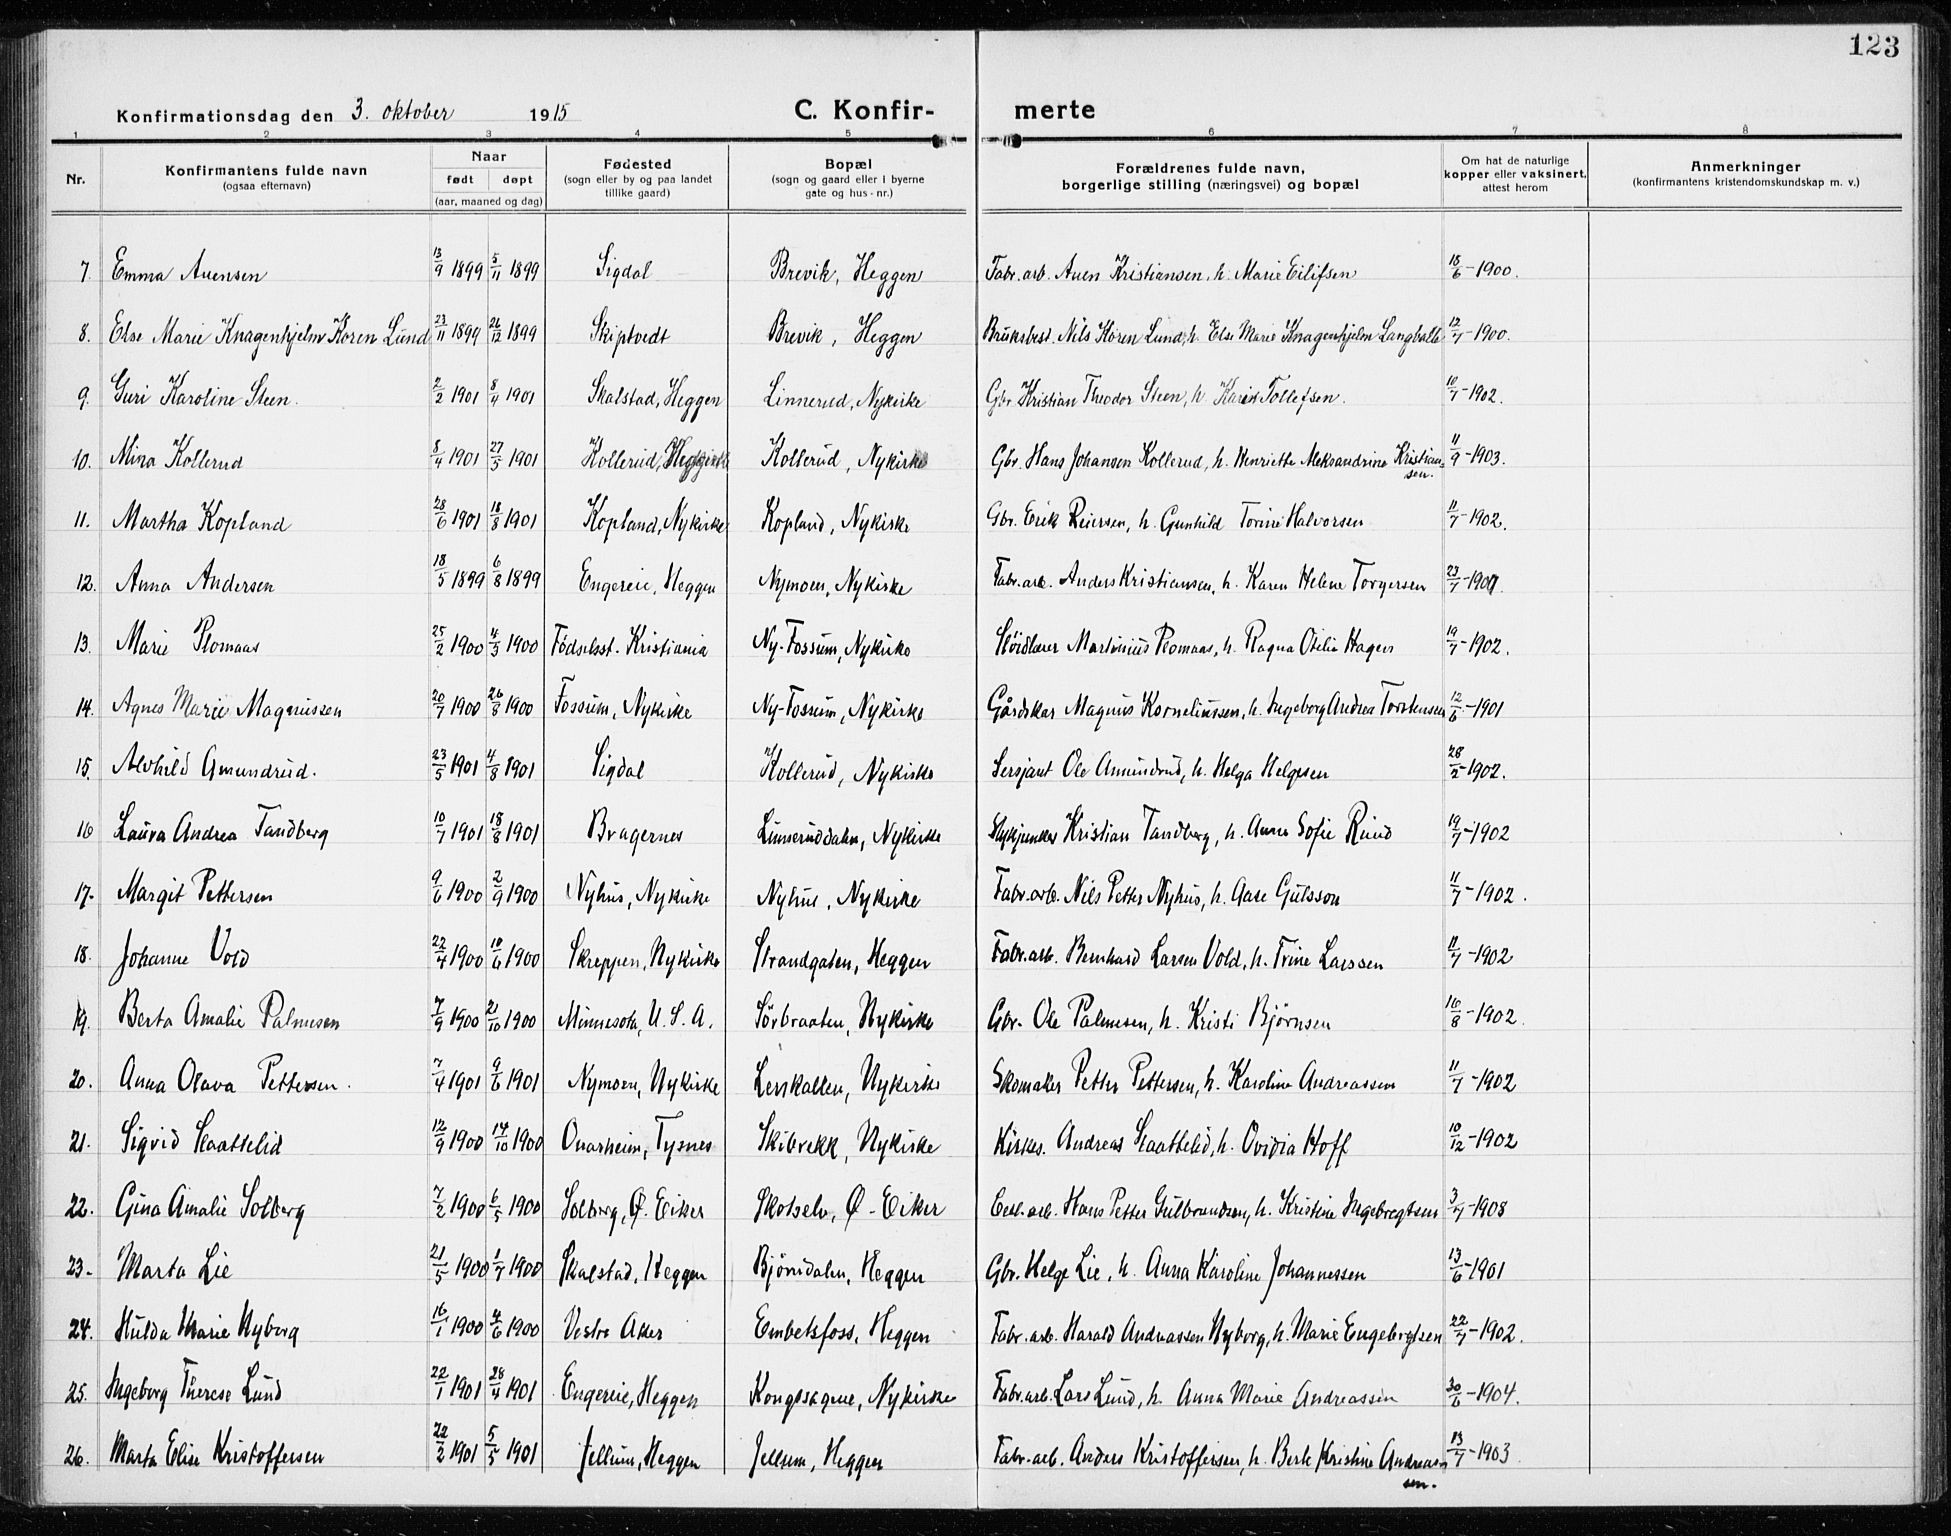 123
Konfirmationsdag den 3. oktober 1915 C. Konfir- merte
1 2 3 4 5 6 7 8
Nr. Konfirmantens fulde navn (ogsaa efternavn) Naar født døpt (aar, maaned og dag) Fødested (sogn eller by og paa landet tillike gaard) Bopæl (sogn og gaard eller i byerne gate og hus-nr.) Forældrenes fulde navn, borgerlige stilling (næringsvei) og bopæl Om hat de naturlige kopper eller vaksinert, attest herom Anmerkninger (konfirmantens kristendomskundskap m. v.)
7. Emma Auensen 13/9 1899 5/11 1899 Sigdal Brevik, Heggen Fabr. arb. Auen Kristiansen, h. Marie Eilifsen 18/6-1900.
8. Else Marie Knagenhjelm Koren Lund 23/11 1899 26/12 1899 Skiptvedt Brevik, Heggen Bruksbest. Nils Koren Lund, h. Else Marie Knagenhjelm Langballe 12/7-1900.
9. Guri Karoline Steen. 2/2 1901 8/4 1901 Skalstad, Heggen Linnerud, Nykirke Gbr. Kristian Theodor Steen, h. Karen Tollefsen. 10/7-1902.
10. Mina Kollerud 8/4 1901 27/5 1901 Kollerud, Kollerud, Nykirke Gbr. Hans Johansen Kollerud, h. Henriette Aleksandrine Kristian-
sen.
11/9-1903.
11. Martha Kopland 28/6 1901 18/8 1901 Kopland, Nykirke Kopland, Nykirke Gbr. Erik Reiersen, h. Gunhild Torine Halvorsen 11/7-1902.
12. Anna Andersen 18/5 1899 6/8 1899 Engereie, Heggen Nymoen, Nykirke Fabr. arb. Anders Kristiansen, h. Karen Helene Torgersen 23/7-1900.
13. Marie Plomaas 25/2 1900 4/5 1900 Fødselsst. Kristiania Ny-Fossum, Nykirke Sløidlærer Martinius Plomaas, h. Ragna Otilie Hagen 19/7-1902.
14. Agnes Marie Magnussen 20/7 1900 26/8 1900 Fossum, Nykirke Ny-Fossum, Nykirke Gårdskar Magnus Korneliussen, h. Ingeborg Andrea Torstensen 12/6-1901
15. Alvhild Amundrud. 23/5 1901 4/8 1901 Sigdal Kollerud, Nykirke Sersjant Ole Amundrud, h. Helga Helgesen 28/2-1902.
16 Laura Andrea Tandberg 10/7 1901 18/8 1901 Bragernes Linneruddalen, Nykirke Kristian Tandberg, h. Anna Sofie Ruud 19/7-1902
17. Margit Pettersen 9/6 1900 2/9 1900 Nyhus, Nykirke Nyhus, Nykirke Fabr. arb. Nils Petter Nyhus, h. Aase Gulsson 11/7-1902.
18. Johanne Vold 22/4 1900 10/6 1900 Skreppen, Nykirke Strandgaten, Heggen Fabr. arb. Bernhard Larsen Vold, h. Trine Larssen 11/7-1902
19. Berta Amalie Palmesen 7/9 1900 21/10 1900 Minnesota, U. S. A. Sørbraaten, Nykirke Gbr. Ole Palmesen, h. Kristi Bjørnsen 16/8-1902.
20. Anna Olava Pettersen. 7/4 1901 9/6 1901 Nymoen, Nykirke Lerskallen, Nykirke Skomaker Petter Pettersen, h. Karoline Andreassen 11/7-1902
21. Sigvid Slaattelid 12/9 1900 14/10 1900 Onarheim, Tysnes Skibrekk, Nykirke Kirkes. Andreas Slaattelid, h. Ovidia Hoff 10/12-1902
22. Gina Amalie Solberg 7/2 1900 6/5 1900 Solberg, Ø. Eiker Skotselv, Ø-Eiker Cell. arb. Hans Petter Gulbrandsen, h. Kristine Ingebregtsen 3/7-1908
23. Marta Lie 21/5 1900 1/7 1900 Skalstad, Heggen Bjørndalen, Heggen Gbr. Helge Lie, h. Anna Karoline Johannessen 13/6-1901
24. Hulda Marie Nyborg 16/1 1900 4/6 1900 Vestre Aker Embetsfoss, Heggen Fabr. arb. Harald Andreassen Nyborg, h. Marie Engebrigtsen 22/7-1902.
25. Ingeborg Therese Lund 22/1 1901 28/4 1901 Engereie, Heggen Kongssagene, Nykirke Fabr. arb. Lars Lund, h. Anna Marie Andreassen 30/6-1904.
26. Marta Elise Kristoffersen 22/2 1901 5/5 1901 Jellum, Heggen Jellum, Heggen Fabr. arb. Anders Kristoffersen, h. Berte Kristine Andreas-
sen.
13/7-1903